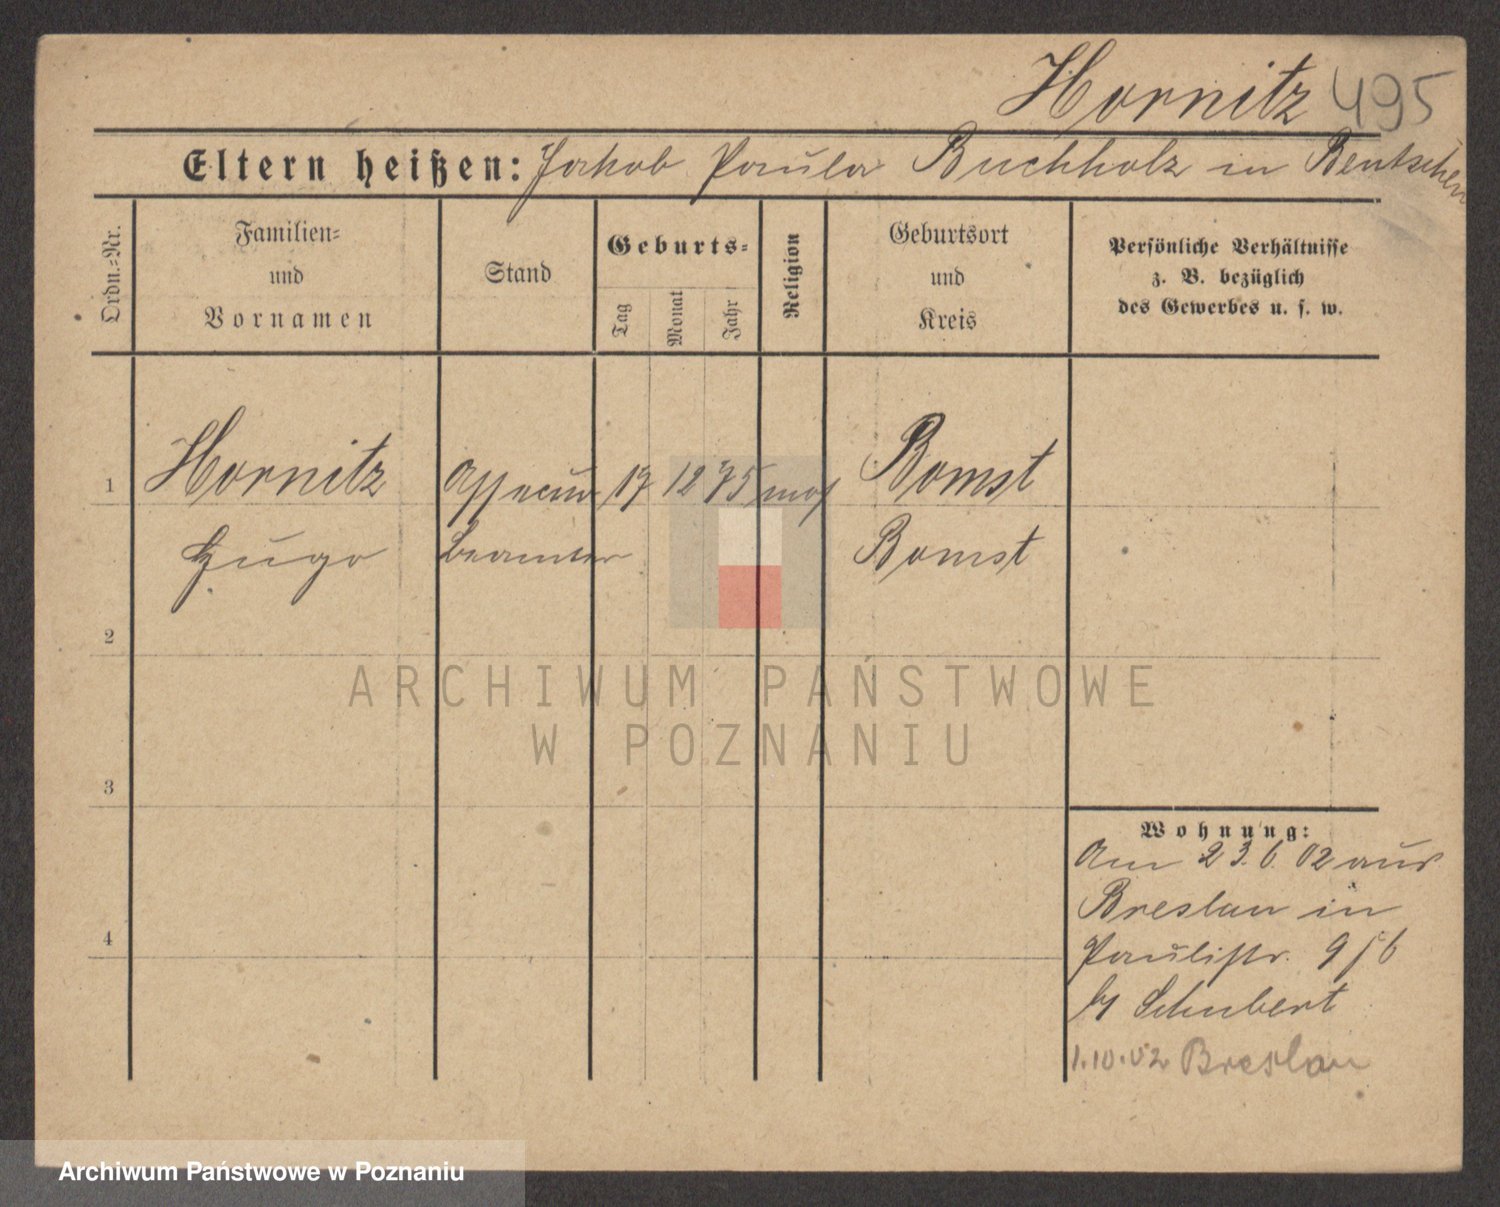 Hornitz 495
Eltern heißen: Jakob Paula Buchholz in Bentschen
Ordn.-Nr.
Familien-
und
Vornamen
Stand
Geburts-
Tag
Monat
Jahr
Religion
Geburtsort
und
Kreis
Persönliche Verhältnisse
z. B. bezüglich
des Gewerbes u. s. w.
1 Hornitz Assecur 17 12 75 mos Bomst
Hugo beamter Bomst
2
3
4
Wohnung:
Am 23.6.02 aus
Breslau in
Paulistr. 9 b
b/ Schubert
1.10.02 Breslau
ARCHIWUM PAŃSTWOWE
W POZNANIU
Archiwum Państwowe w Poznaniu